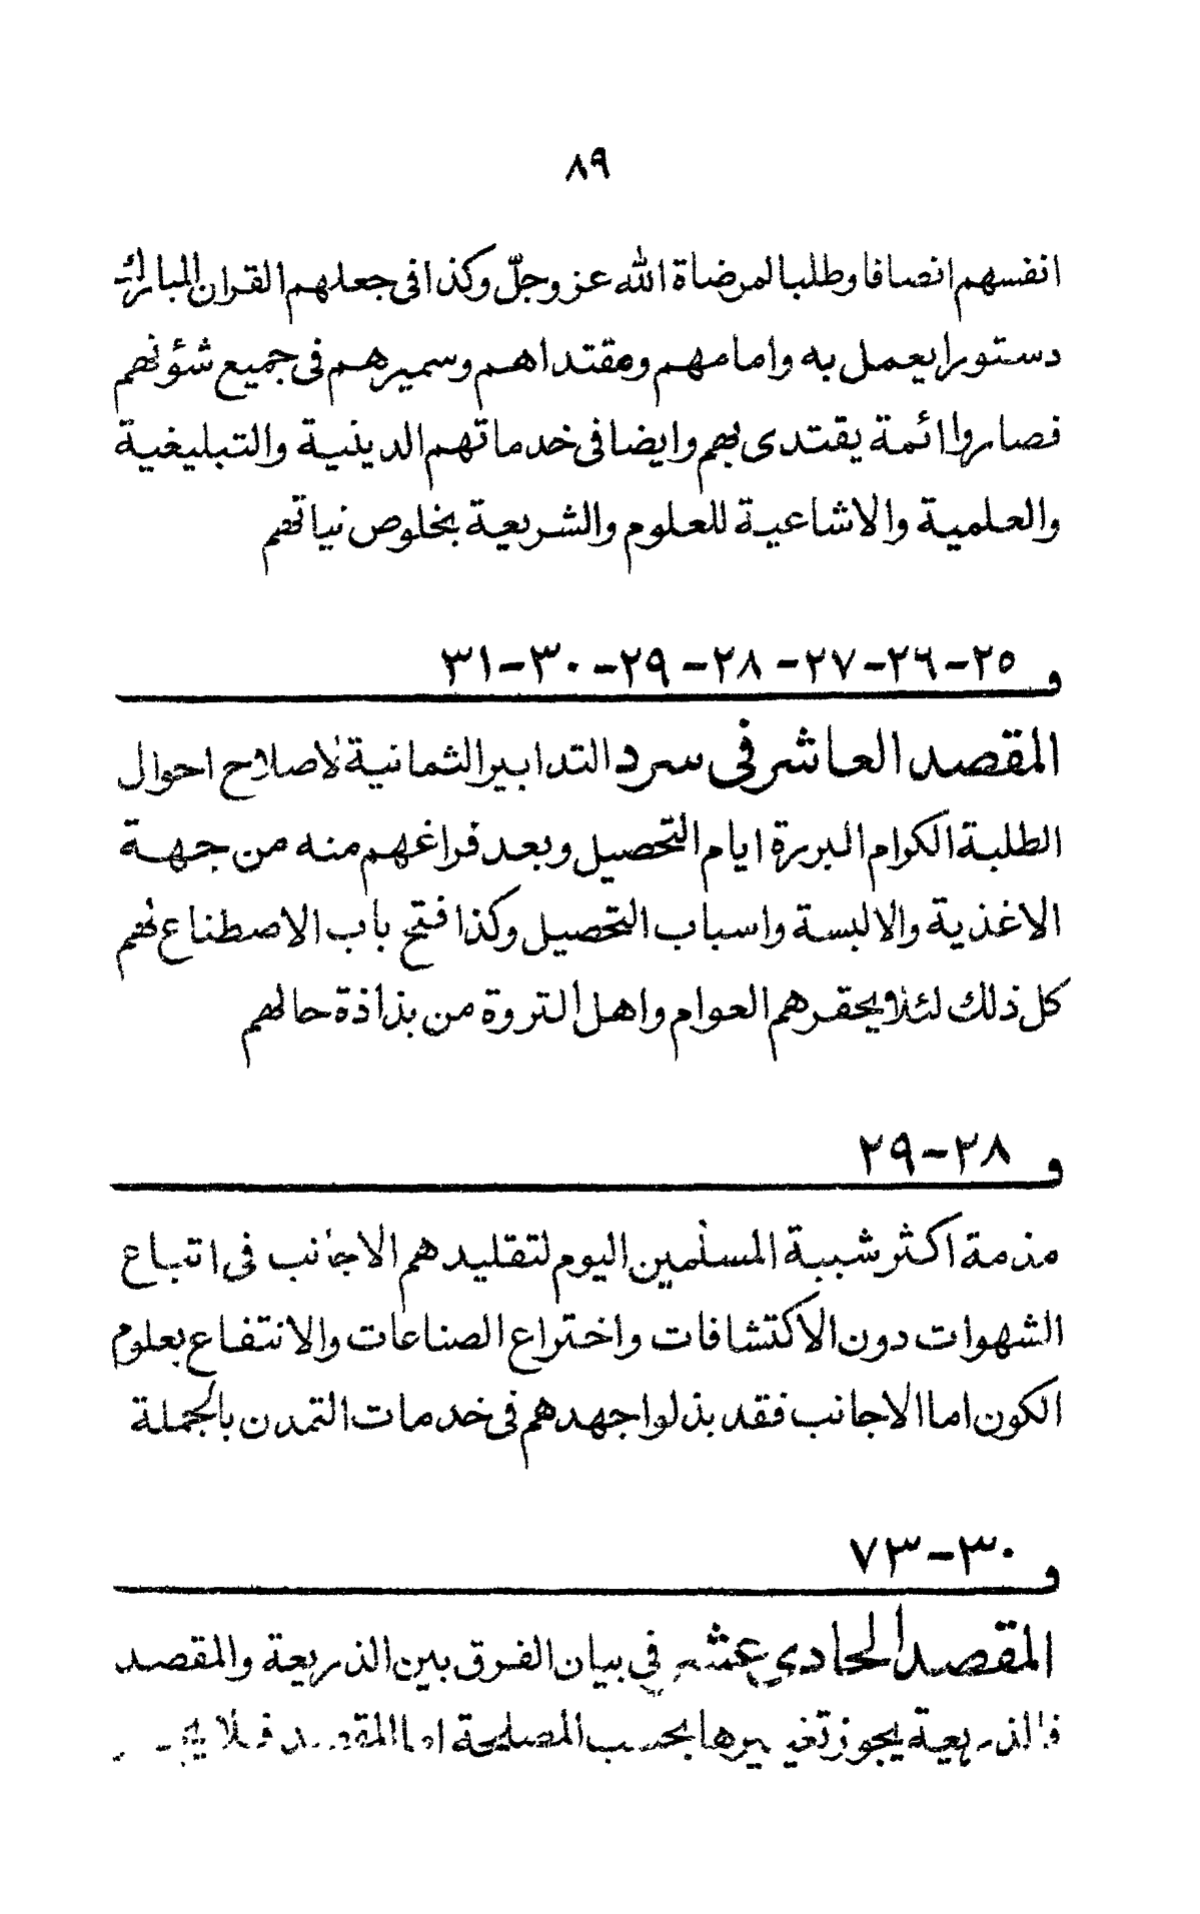 ٨٩
انفسهم انصافا وطلبا لمرضاة الله عز وجلّ وكذا فى جعلهم القران المبارك
دستورا يعمل به وامامهم ومقتداهم وسميرهم فى جميع شؤنهم
فصاروا ائمة يقتدى بهم وايضا فى خدماتهم الدينية والتبليغية
والعلمية والاشاعية للعلوم والشريعة بخلوص نياتهم
و ٢٥-٢٦-٢٧-٢٨-٢٩-٣٠-٣١
المقصد العاشر فى سرد التدابير الثمانية لاصلاح احوال
الطلبة الكرام البررة ايام التحصيل وبعد فراغهم منه من جهة
الاغذية والالبسة واسباب التحصيل وكذا فتح باب الاصطناع لهم
كل ذلك لئلا يحقرهم العوام واهل التروة من بذاذة حالهم
و ٢٨-٢٩
مذمة اكثر شببة المسلمين اليوم لتقليدهم الاجانب فى اتباع
الشهوات دون الاكتشافات واختراع الصناعات والانتفاع بعلوم
الكون اما الاجانب فقد بذلوا جهدهم فى خدمات التمدن بالجملة
و ٣٠-٧٣
المقصد الحادي عشر في بيان الفرق بين الذريعة والمقصد
فالذريعة يجوز تغييرها بحسب المصلحة اما المقصد فلا